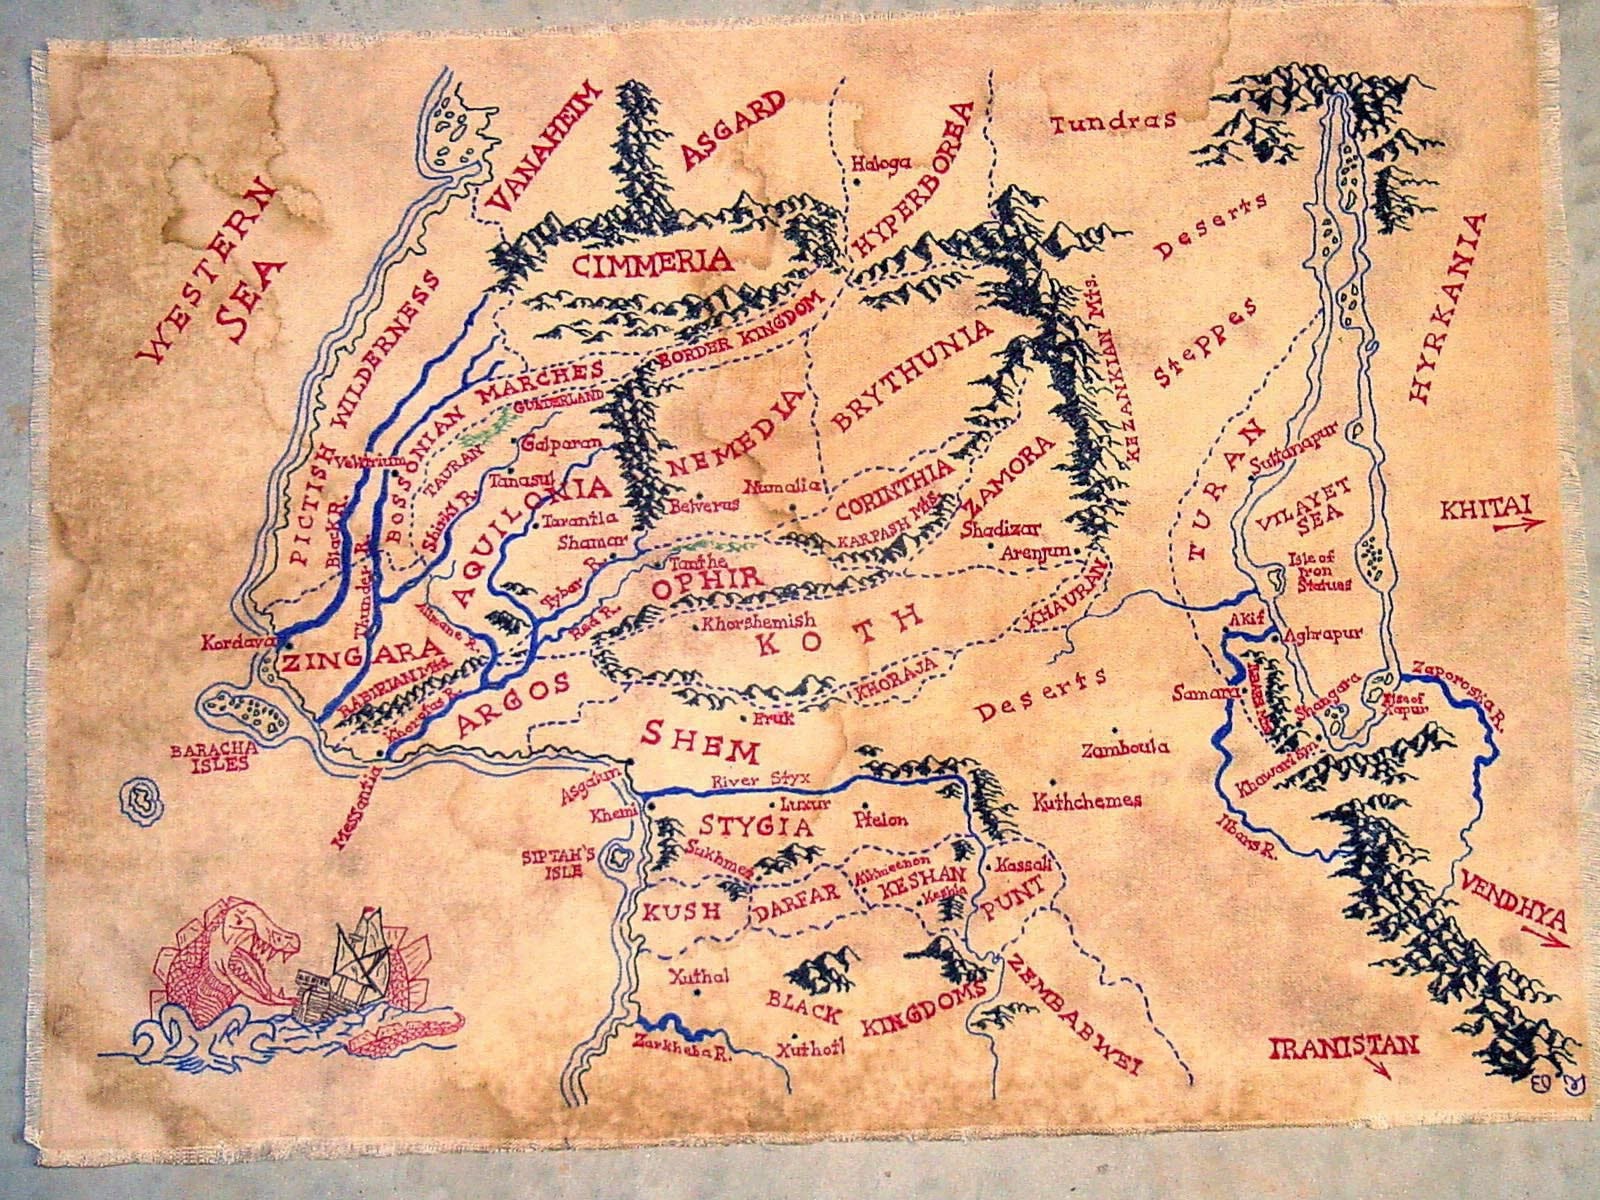 VANAHEIM
ASGARD
HYPERBOREA
Haloga
Tundras
Deserts
Steppes
HYRKANIA
WESTERN
SEA
CIMMERIA
PICTISH WILDERNESS
BORDER KINGDOM
BOSSONIAN MARCHES
GUNDERLAND
TAURAN
Galparan
Velitrium
Tanasul
AQUILONIA
Tarantia
Shamar
Shirki R.
Black R.
Thunder R.
Alimane R.
Tybor R.
Red R.
NEMEDIA
Belverus
Numalia
BRYTHUNIA
CORINTHIA
KARPASH Mts.
ZAMORA
Shadizar
Arenjun
KEZANKIAN Mts.
TURAN
Sultanapur
VILAYET
SEA
Isle of
Iron
Statues
KHITAI
Akif
Aghrapur
Samara
Shangara
Isle of
Xapur
Zaporoska R.
Khawarism
Ilbars R.
OPHIR
Ianthe
KOTH
Khorshemish
KHAURAN
KHORAJA
Kordava
ZINGARA
RABIRIAN Mts.
Khorotas R.
ARGOS
Messantia
BARACHA
ISLES
SHEM
Eruk
Asgalun
Deserts
Zamboula
Kuthchemes
River Styx
Khemi
Luxur
STYGIA
Pteion
SIPTAH'S
ISLE
Sukhmet
KUSH
DARFAR
KESHAN
Keshia
Kassali
PUNT
Xuthal
BLACK KINGDOMS
ZEMBABWEI
Zarkheba R.
Xuthotl
VENDHYA
IRANISTAN